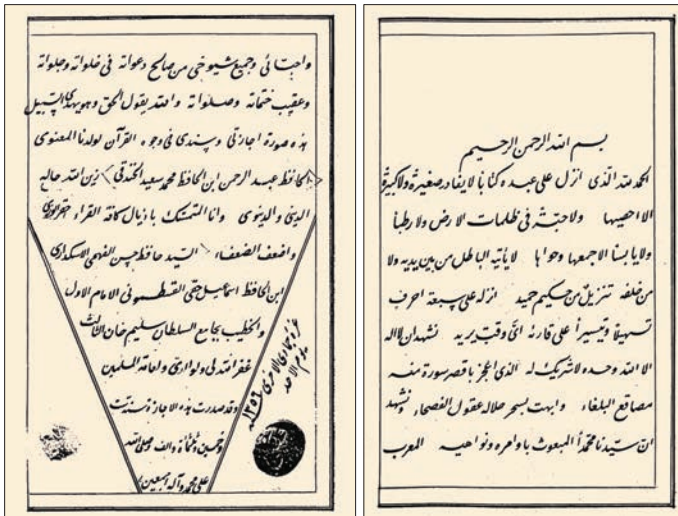 بسم الله الرحمن الرحيم
الحمد لله الذى انزل على عبده كتابا لا يغادر صغيرة ولا كبيرة
الا احصيها ولا حبّة فى ظلمات الارض ولا رطبا
ولا يابسا الا جمعها وحواها لا يأتيه الباطل من بين يديه ولا
من خلفه تنزيل من حكيم حميد انزله على سبعة احرف
تسهيلا وتيسيرا على قارئه اىّ وقت يريد نشهد ان لا اله
الا الله وحده لا شريك له الذى اعجز باقصر سورة منه
مصاقع البلغاء وابهت بسحر حلاله عقول الفصحاء ونشهد
ان سيّدنا محمّدا المبعوث باوامره ونواهيه المعرب
واحبّائى وجميع شيوخى من صالح دعواته فى خلواته وجلواته
وعقيب ختماته وصلواته والله يقول الحق وهو يهدى السبيل
هذه صورة اجازتى وسندى فى وجوه القرآن لولدنا المعنوى
الحافظ عبد الرحمن ابن الحافظ محمد سعيد الخندقى زين الله حاله
الدينى والدنيوى وانا المتمسّك باذيال كافة القراء
واضعف الضعفاء السيّد حافظ حسن الفهمى الاسكدارى
ابن الحافظ اسماعيل حقى القسطمونى الامام الاول
والخطيب بجامع السلطان سليم خان الثالث
غفر الله لى ولوالدىّ ولعامة المسلمين
وقد صدرت هذه الاجازة سنة ستّ
وخمسين وثلثمائة والف وصلى الله
على محمد وآله اجمعين
غرۀ جمادى الاخرى ١٣٥٦
يوم الاحد